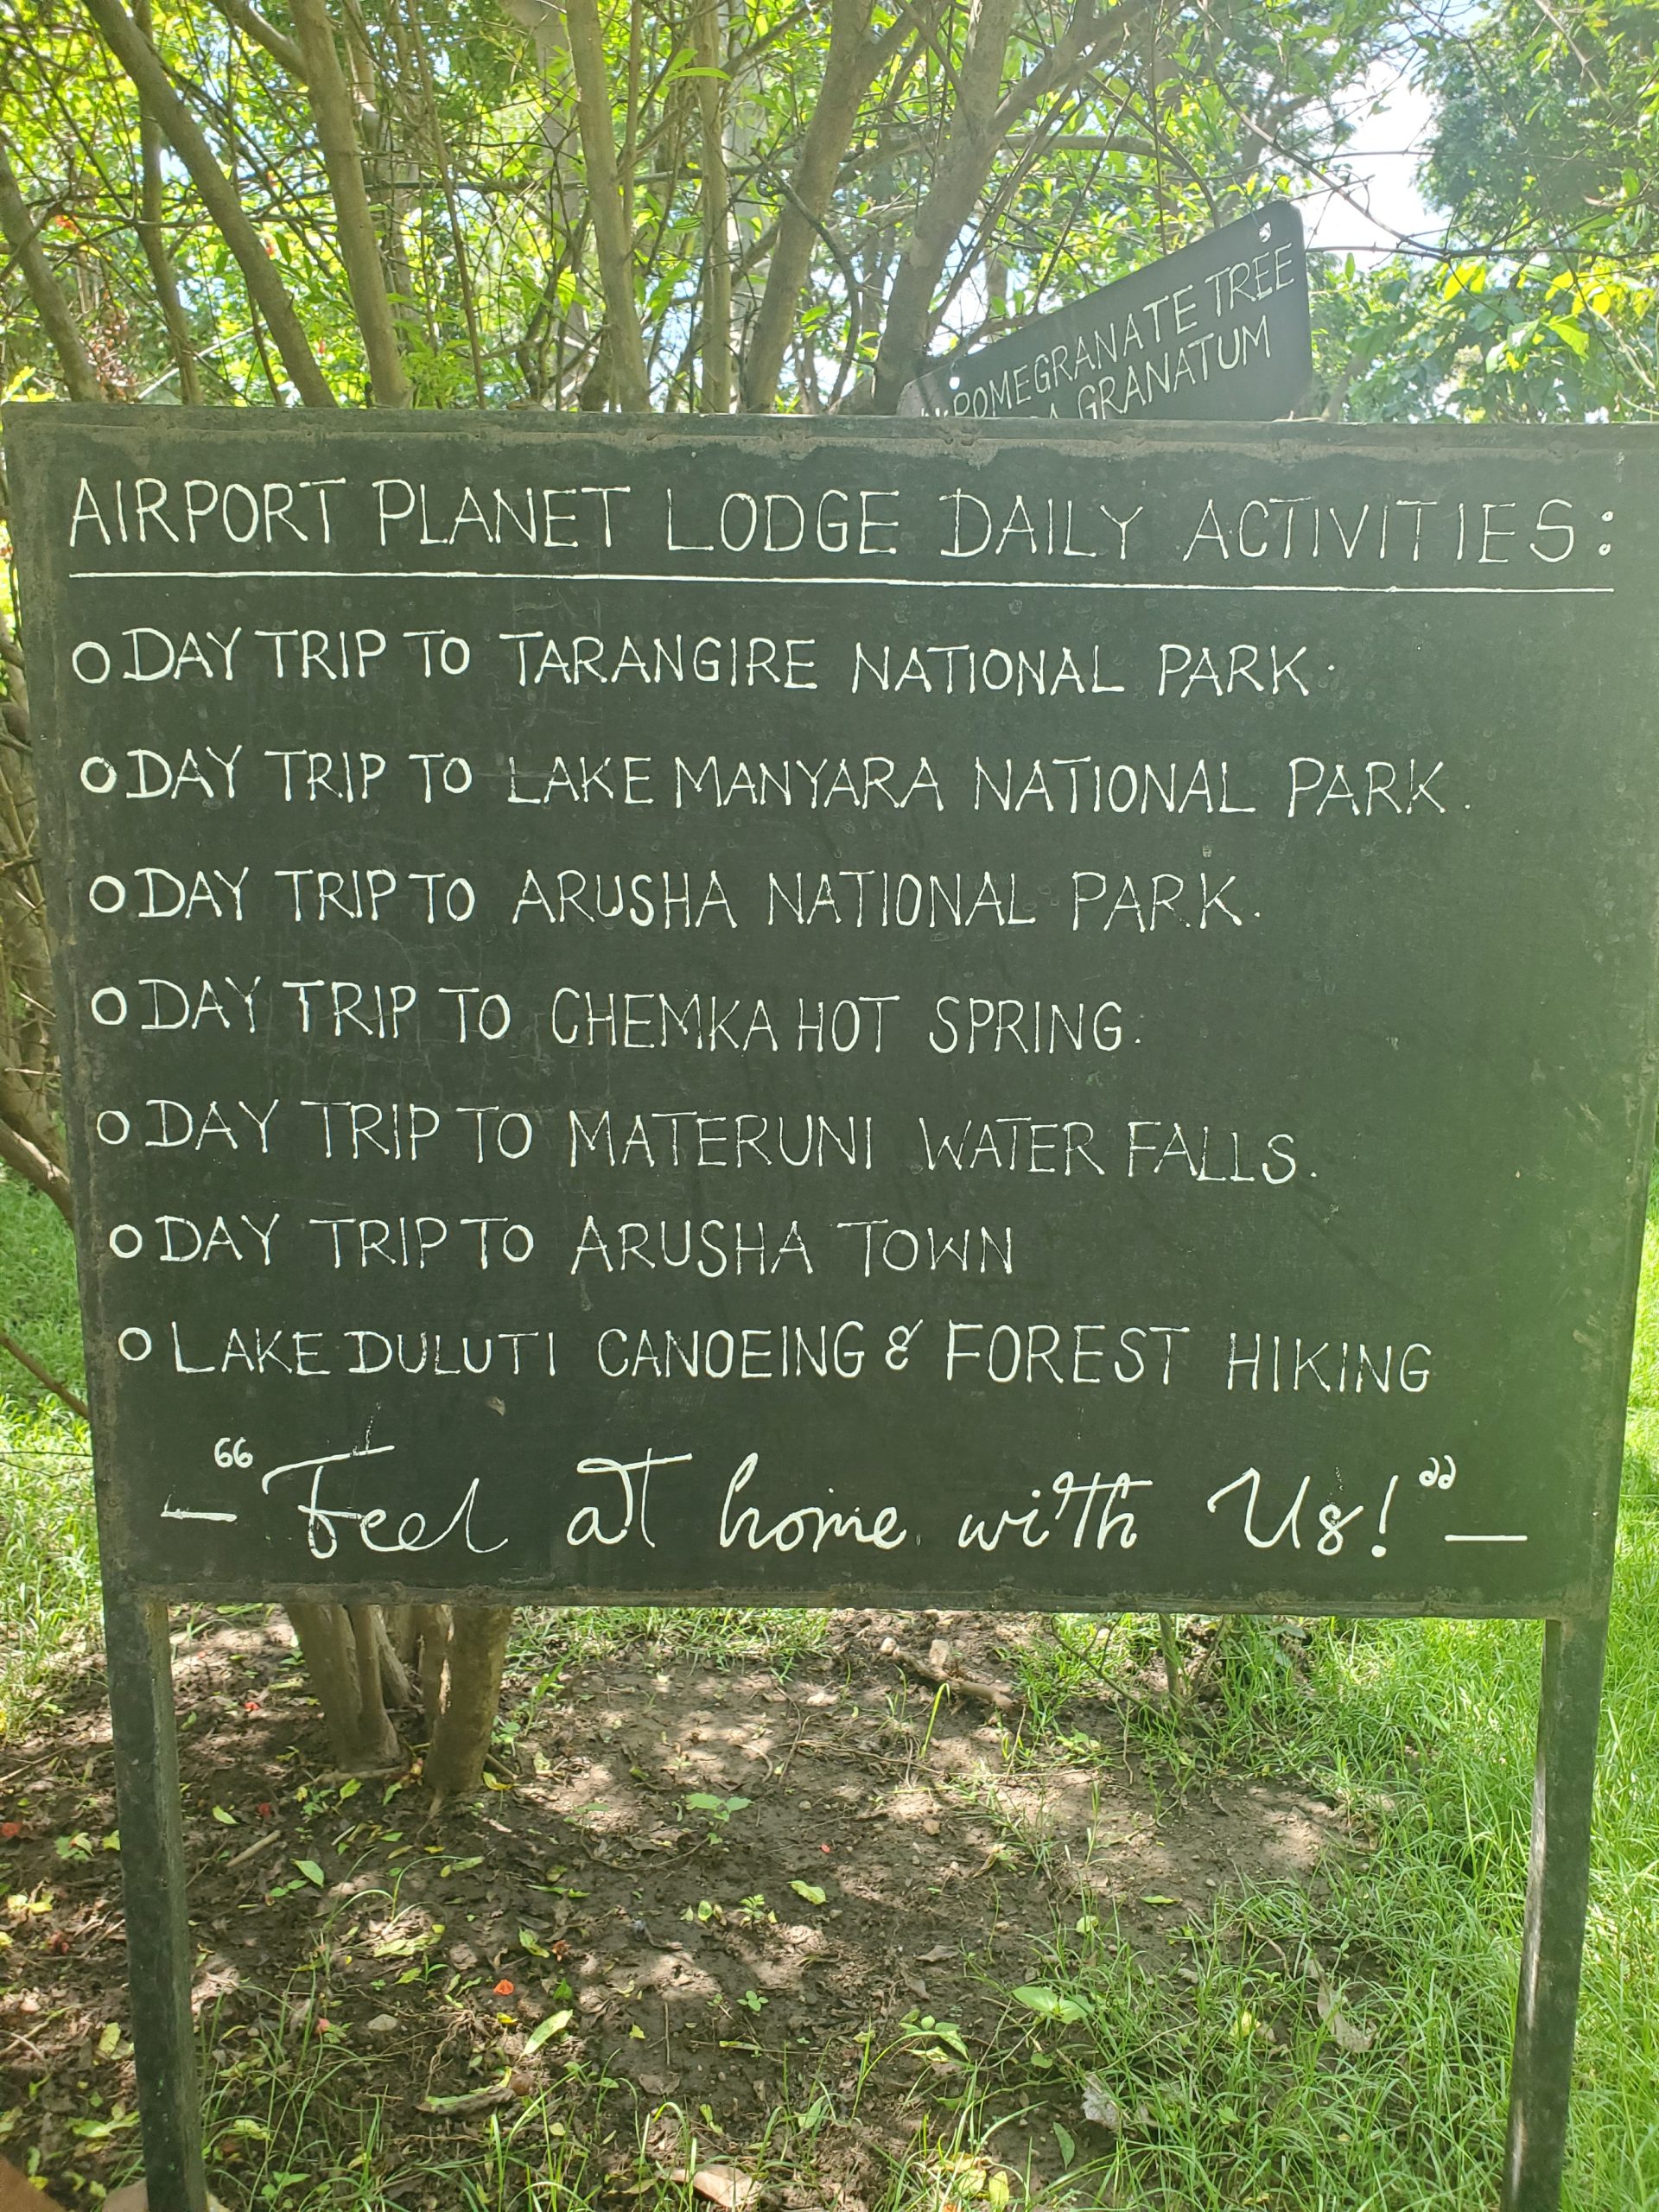 POMEGRANATE TREE
GRANATUM
AIRPORT PLANET LODGE DAILY ACTIVITIES:
O DAY TRIP TO TARANGIRE NATIONAL PARK.
O DAY TRIP TO LAKE MANYARA NATIONAL PARK.
O DAY TRIP TO ARUSHA NATIONAL PARK.
O DAY TRIP TO CHEMKA HOT SPRING.
O DAY TRIP TO MATERUNI WATER FALLS.
O DAY TRIP TO ARUSHA TOWN
O LAKE DULUTI CANOEING & FOREST HIKING
— "Feel at home with Us!" —